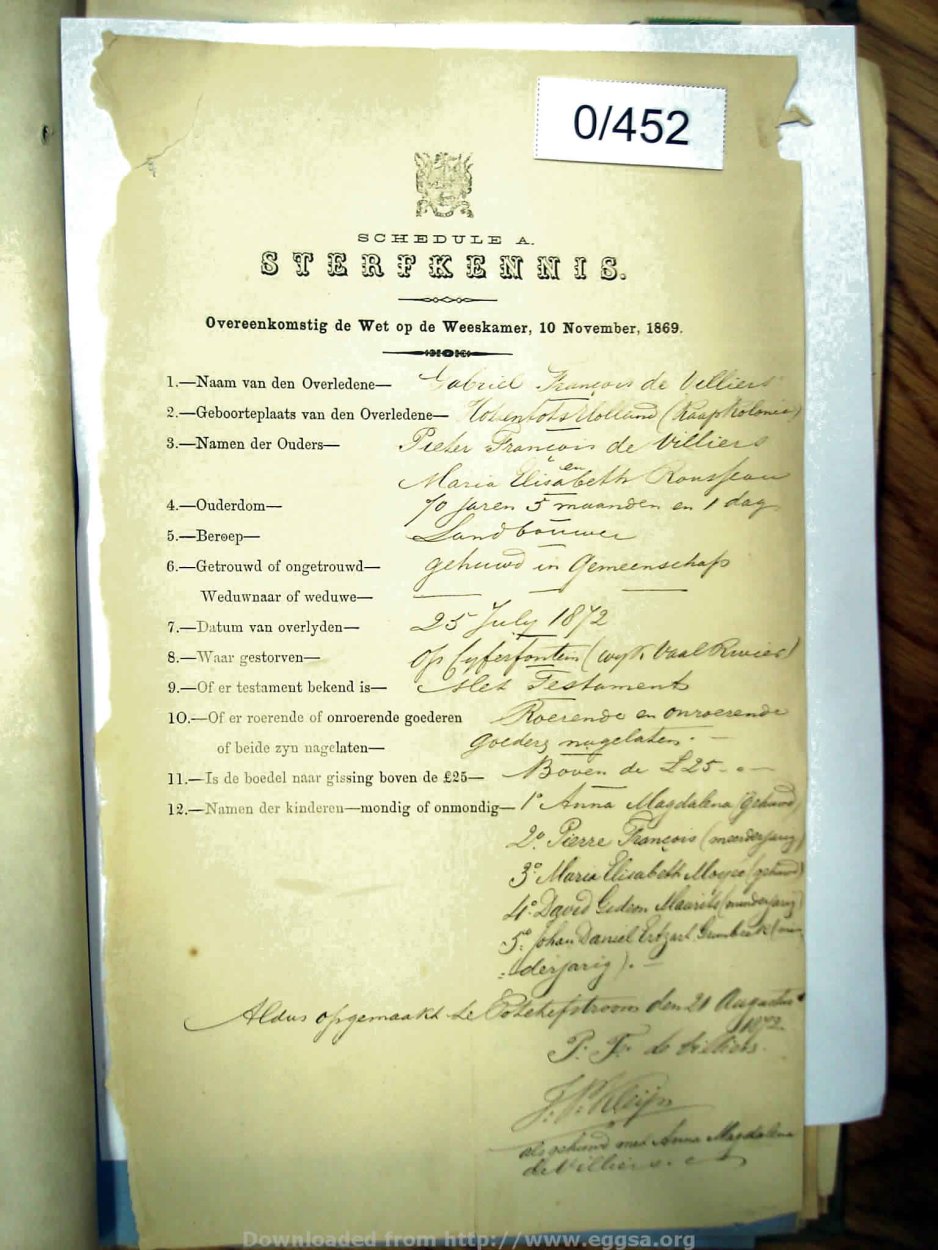 0/452
SCHEDULE A.
STERFKENNIS.
Overeenkomstig de Wet op de Weeskamer, 10 November, 1869.
1.—Naam van den Overledene— Gabriel François de Villiers
2.—Geboorteplaats van den Overledene— Hottentots Holland (Kaap Kolonie)
3.—Namen der Ouders— Pieter François de Villiers
en
Maria Elisabeth Rousseau
4.—Ouderdom— 70 jaren 5 maanden en 1 dag
5.—Beroep— Landbouwer
6.—Getrouwd of ongetrouwd— gehuwd in Gemeenschap
Weduwnaar of weduwe—
7.—Datum van overlyden— 25 July 1872
8.—Waar gestorven— Op Cyferfontein (wyk Vaal Rivier)
9.—Of er testament bekend is— Met Testament
10.—Of er roerende of onroerende goederen Roerende en onroerende
of beide zyn nagelaten— goeders nagelaten. —
11.—Is de boedel naar gissing boven de £25— Boven de £25. —
12.—Namen der kinderen—mondig of onmondig— 1° Anna Magdalena (gehuwd)
2° Pierre François (meerderjarig)
3° Maria Elisabeth (gehuwd)
4° David Gideon Maurits (minderjarig)
5° Johan Daniel (min
derjarig). —
Aldus opgemaakt te Potchefstroom den 21 Augustus
1872
P. F. de Villiers.
J. P. Kleijn
als gehuwd met Anna Magdalena
de Villiers.
Downloaded from http://www.eggsa.org